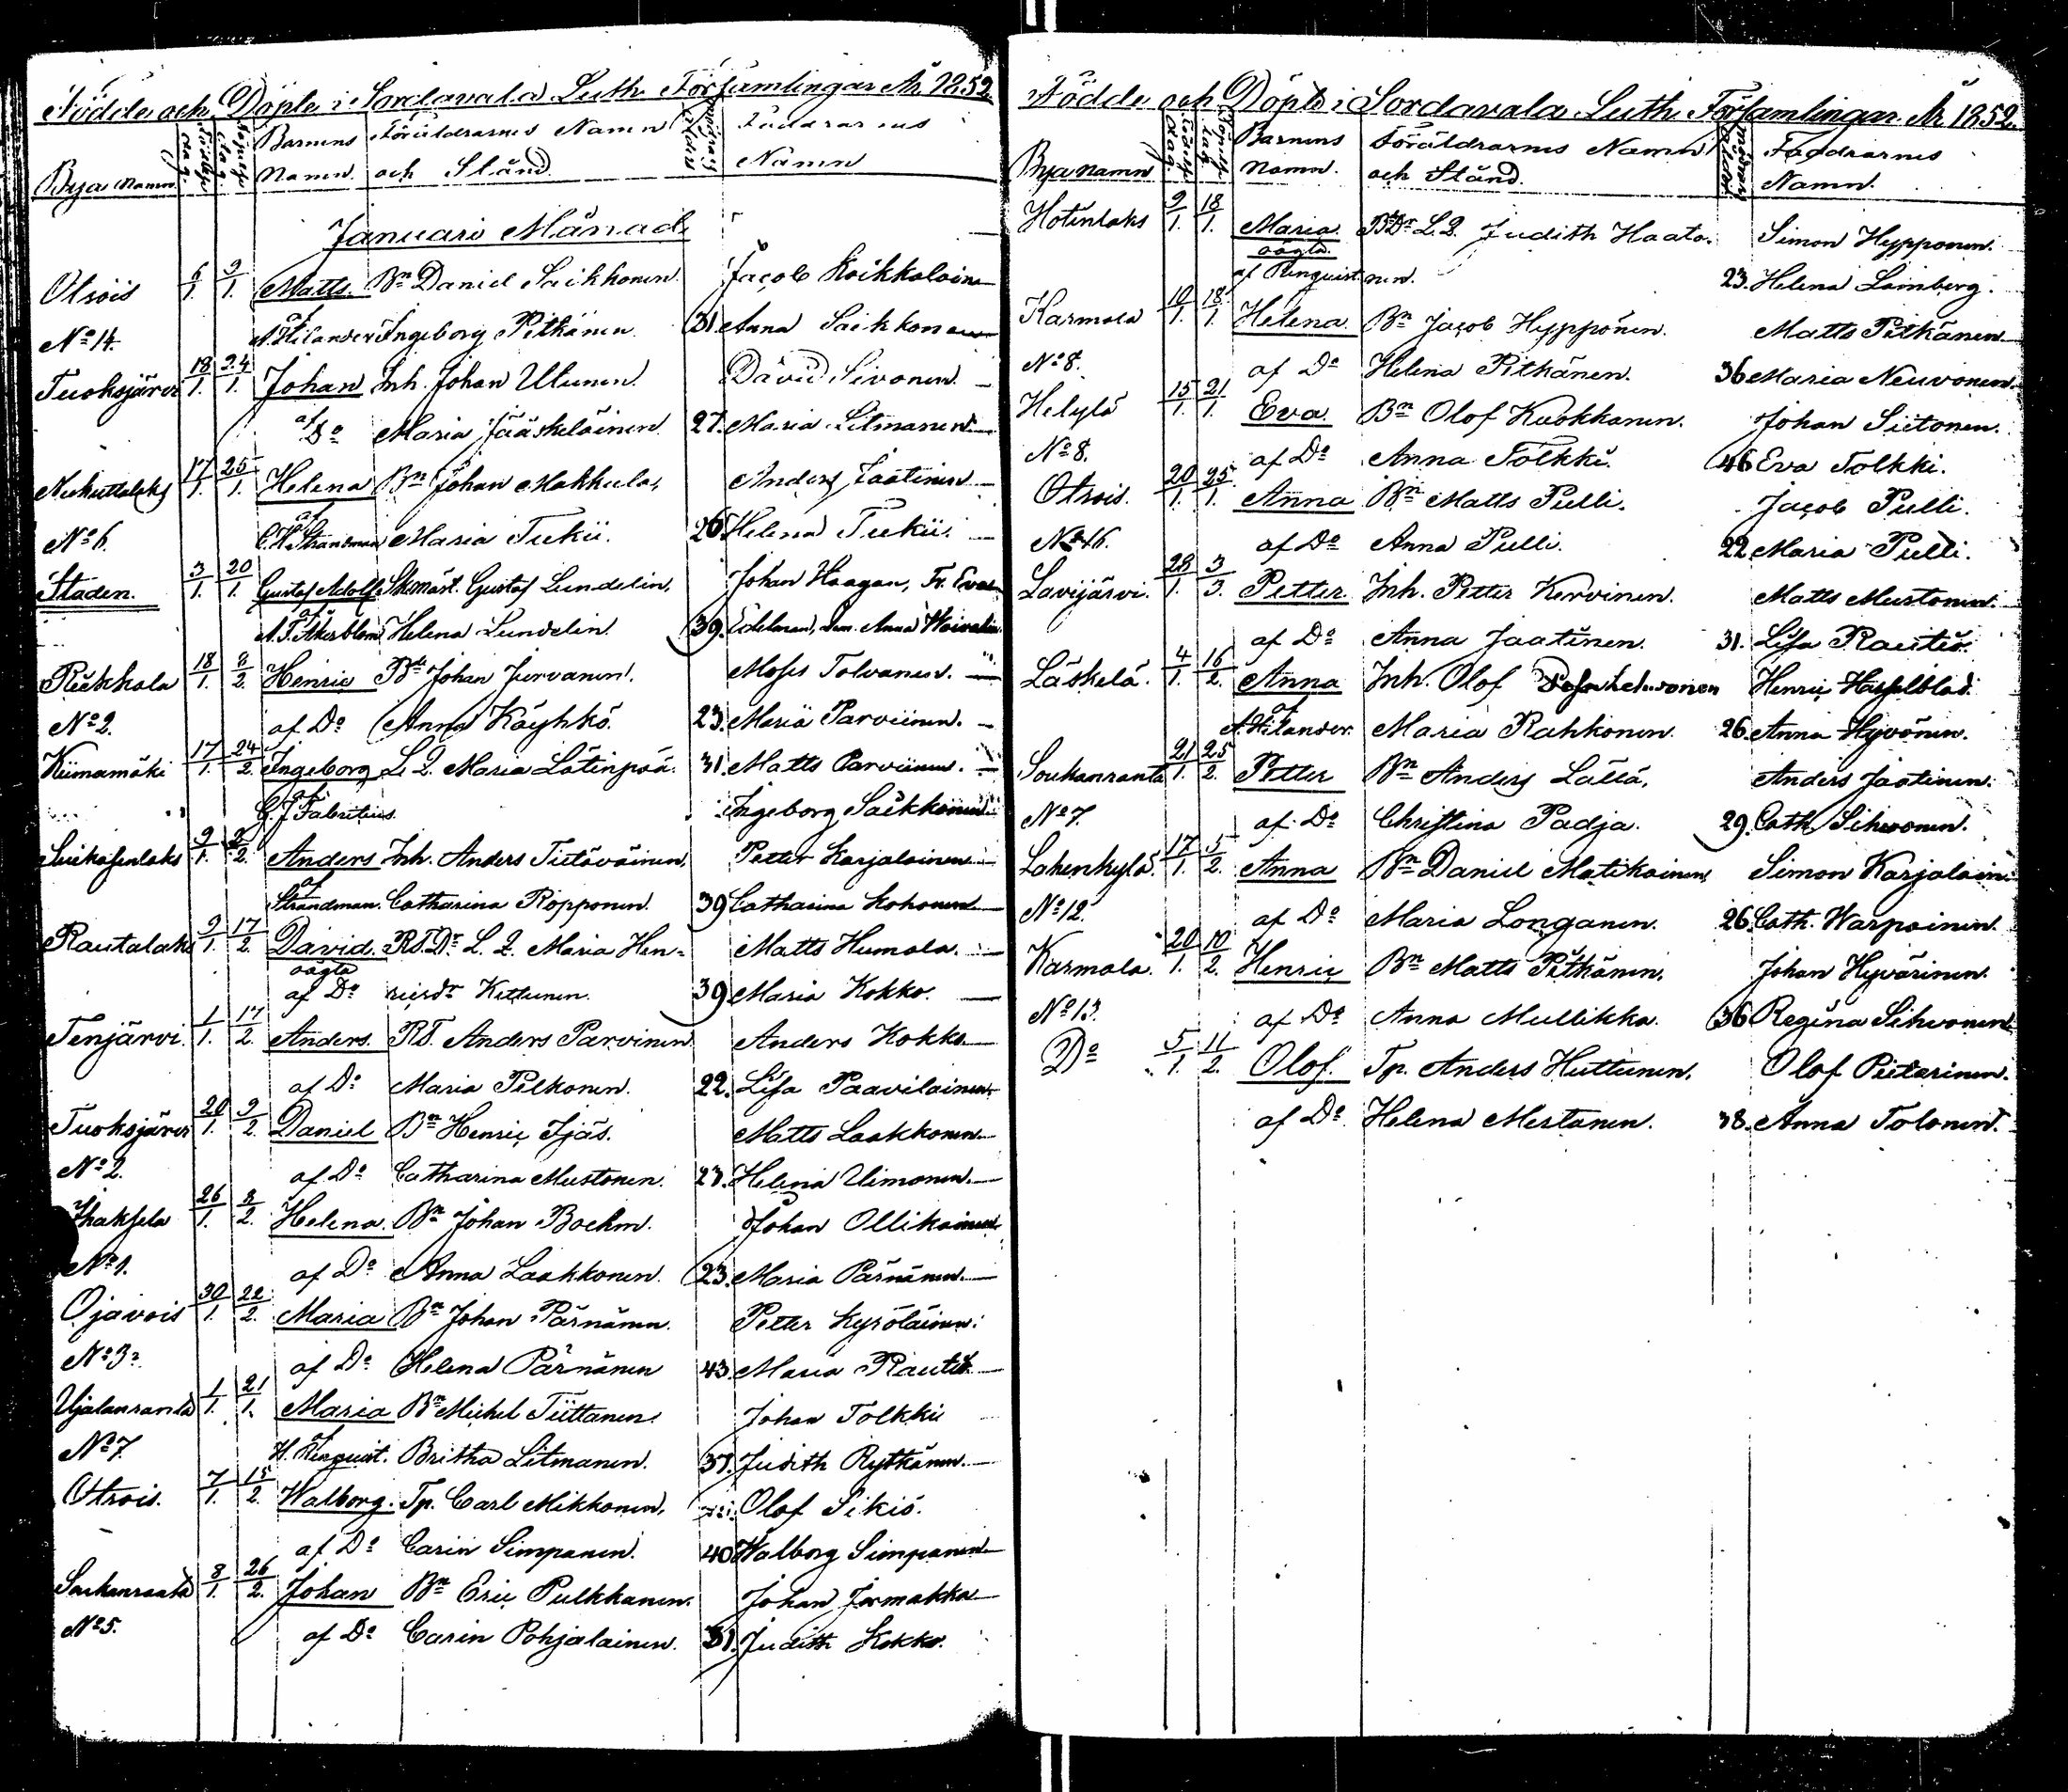 Födde och Döpte i Sordavala Luth. Församlingar År 1852.
Bya Namn. Födelse dag. Barnens Namn. Föräldrarnes Namn och Stånd. Faddrarnes Namn
Januari Månad
Otsois 6/1. 9/1. Matts. Bn Daniel Saikkonen. Jacob Koikkalain
No 14. af A. Hilander Ingeborg Pitkänen 31 Anna Saikkonen
Tuoksjärvi 18/1. 24/1. Johan Inh. Johan Ulunen. David Sivonen.
af Do Maria Jääskeläinen. 27. Maria Litmanen
17/1. 25/1. Helena Bn Johan Makkula, Anders Jäätinen
No 6. af C. H. Strandman Maria Tukii. 26 Helena Tukii.
Staden. 3/1. 20/1. Gustaf Adolf Skomäst. Gustaf Lundelin, Johan Haagan, Fr. Eva
af A. F. Åkerblom Helena Lundelin. 39. Edelman, Dem. Anna
Riekkala 18/1. 8/2. Henric Bn Johan Jurvanen. Moses Tolvanen.
No 2. af Do Anna Käyhkö. 23. Maria Parviinen.
Kiinamäki 17/1. 24/2. Ingeborg L. Q. Maria Lätinpää. 31. Matts Parviinen.
af C. J. Fabritius. Ingeborg Saikkonen
9/1. 2/2. Anders Inh. Anders Tiitäväinen, Petter Karjalainen
af Strandman. Catharina Röpponen. 39 Catharina Kohonen
Rautalaks 9/1. 17/2. David. RT. Dr. L. Q. Maria Hen- Matts Humala.
oägta af Do ricsdr Kettunen. 39 Maria Kokko.
Tenjärvi. 1/1. 17/2. Anders. RT. Anders Parvinen Anders Kokko
af Do Maria Pelkonen. 22. Lisa Paavilainen
Tuoksjärvi 20/1. 9/2. Daniel Bn Henric Ijäs. Matts Laakkonen
No 2. af Do Catharina Mustonen. 23. Helena Uimonen.
Ihaksela 26/1. 8/2. Helena. Bn Johan Boehm. Johan Ollikainen
No 1. af Do Anna Laakkonen. 23. Maria Pärnänen.
Ojavois 30/1. 22/2. Maria Bn Johan Pärnänen. Petter Kyröläinen.
No 3. af Do Helena Pärnänen 43. Maria Rautio
Ujalanranta 1/1. 21/1. Maria Bn Michel Tiittanen. Johan Tolkki
No 7. af H. Renquist. Britha Litmanen. 37. Judith Rytkönen.
Otsois. 7/1. 15/2. Walborg. Tp. Carl Mikkonen, Olof Sikiö.
af Do Carin Simpanen. 40 Walborg Simpanen
Soukanranta 8/1. 26/2. Johan Bn Eric Pulkkanen. Johan Jormakka
No 5. af Do Carin Pohjalainen. 31. Judith Kokko.
Födde och Döpte i Sordavala Luth. Församlingen År 1852.
Bya namn Barnens namn. Föräldrarnes Namn och Stånd. Faddrarnes Namn.
Hotinlaks 9/1. 18/1. Maria BDr L. Q. Judith Haato. Simon Hypponen.
oägta. af Renquist. nen. 23. Helena Lamberg.
Karmola 10/1. 18/1. Helena. Bn Jacob Hyppönen. Matts Pitkänen.
No 8. af Do Helena Pitkänen. 36 Maria Neuvonen.
Helylä 15/1. 21/1. Eva. Bn Olof Kuokkanen. Johan Siitonen.
No 8. af Do Anna Tolkki. 46 Eva Tolkki.
Otsois. 20/1. 25/1. Anna Bn Matts Pulli. Jacob Pulli.
No 16. af Do Anna Pulli. 22 Maria Pulli.
Lavijärvi. 28/1. 3/3. Petter. Inh. Petter Kervinen. Matts Mustonen.
af Do Anna Jaatinen. 31. Lisa Rautio.
Läskelä. 4/1. 16/2. Anna Inh. Olof Henric Hasselblad.
af A. Hilander. Maria Rahkonen. 26. Anna Hyvönen.
Soukanranta 21/1. 25/2. Petter Bn Anders Lällä, Anders Jäätinen.
No 7. af Do Christina Padja. 29. Cath. Sihvonen.
Lahenkylä. 17/1. 5/2. Anna Bn Daniel Matikainen, Simon Karjalain
No 12. af Do Maria Longanen. 26 Cath. Warpainen.
Karmola. 20/1. 10/2. Henric Bn Matts Pitkänen, Johan Hyvärinen.
No 13. af Do Anna Mullikka. 36 Regina Sihvonen
Do 5/1. 11/2. Olof. Tp. Anders Huttunen, Olof Pietarinen.
af Do. Helena Mertanen. 38. Anna Tolonen.